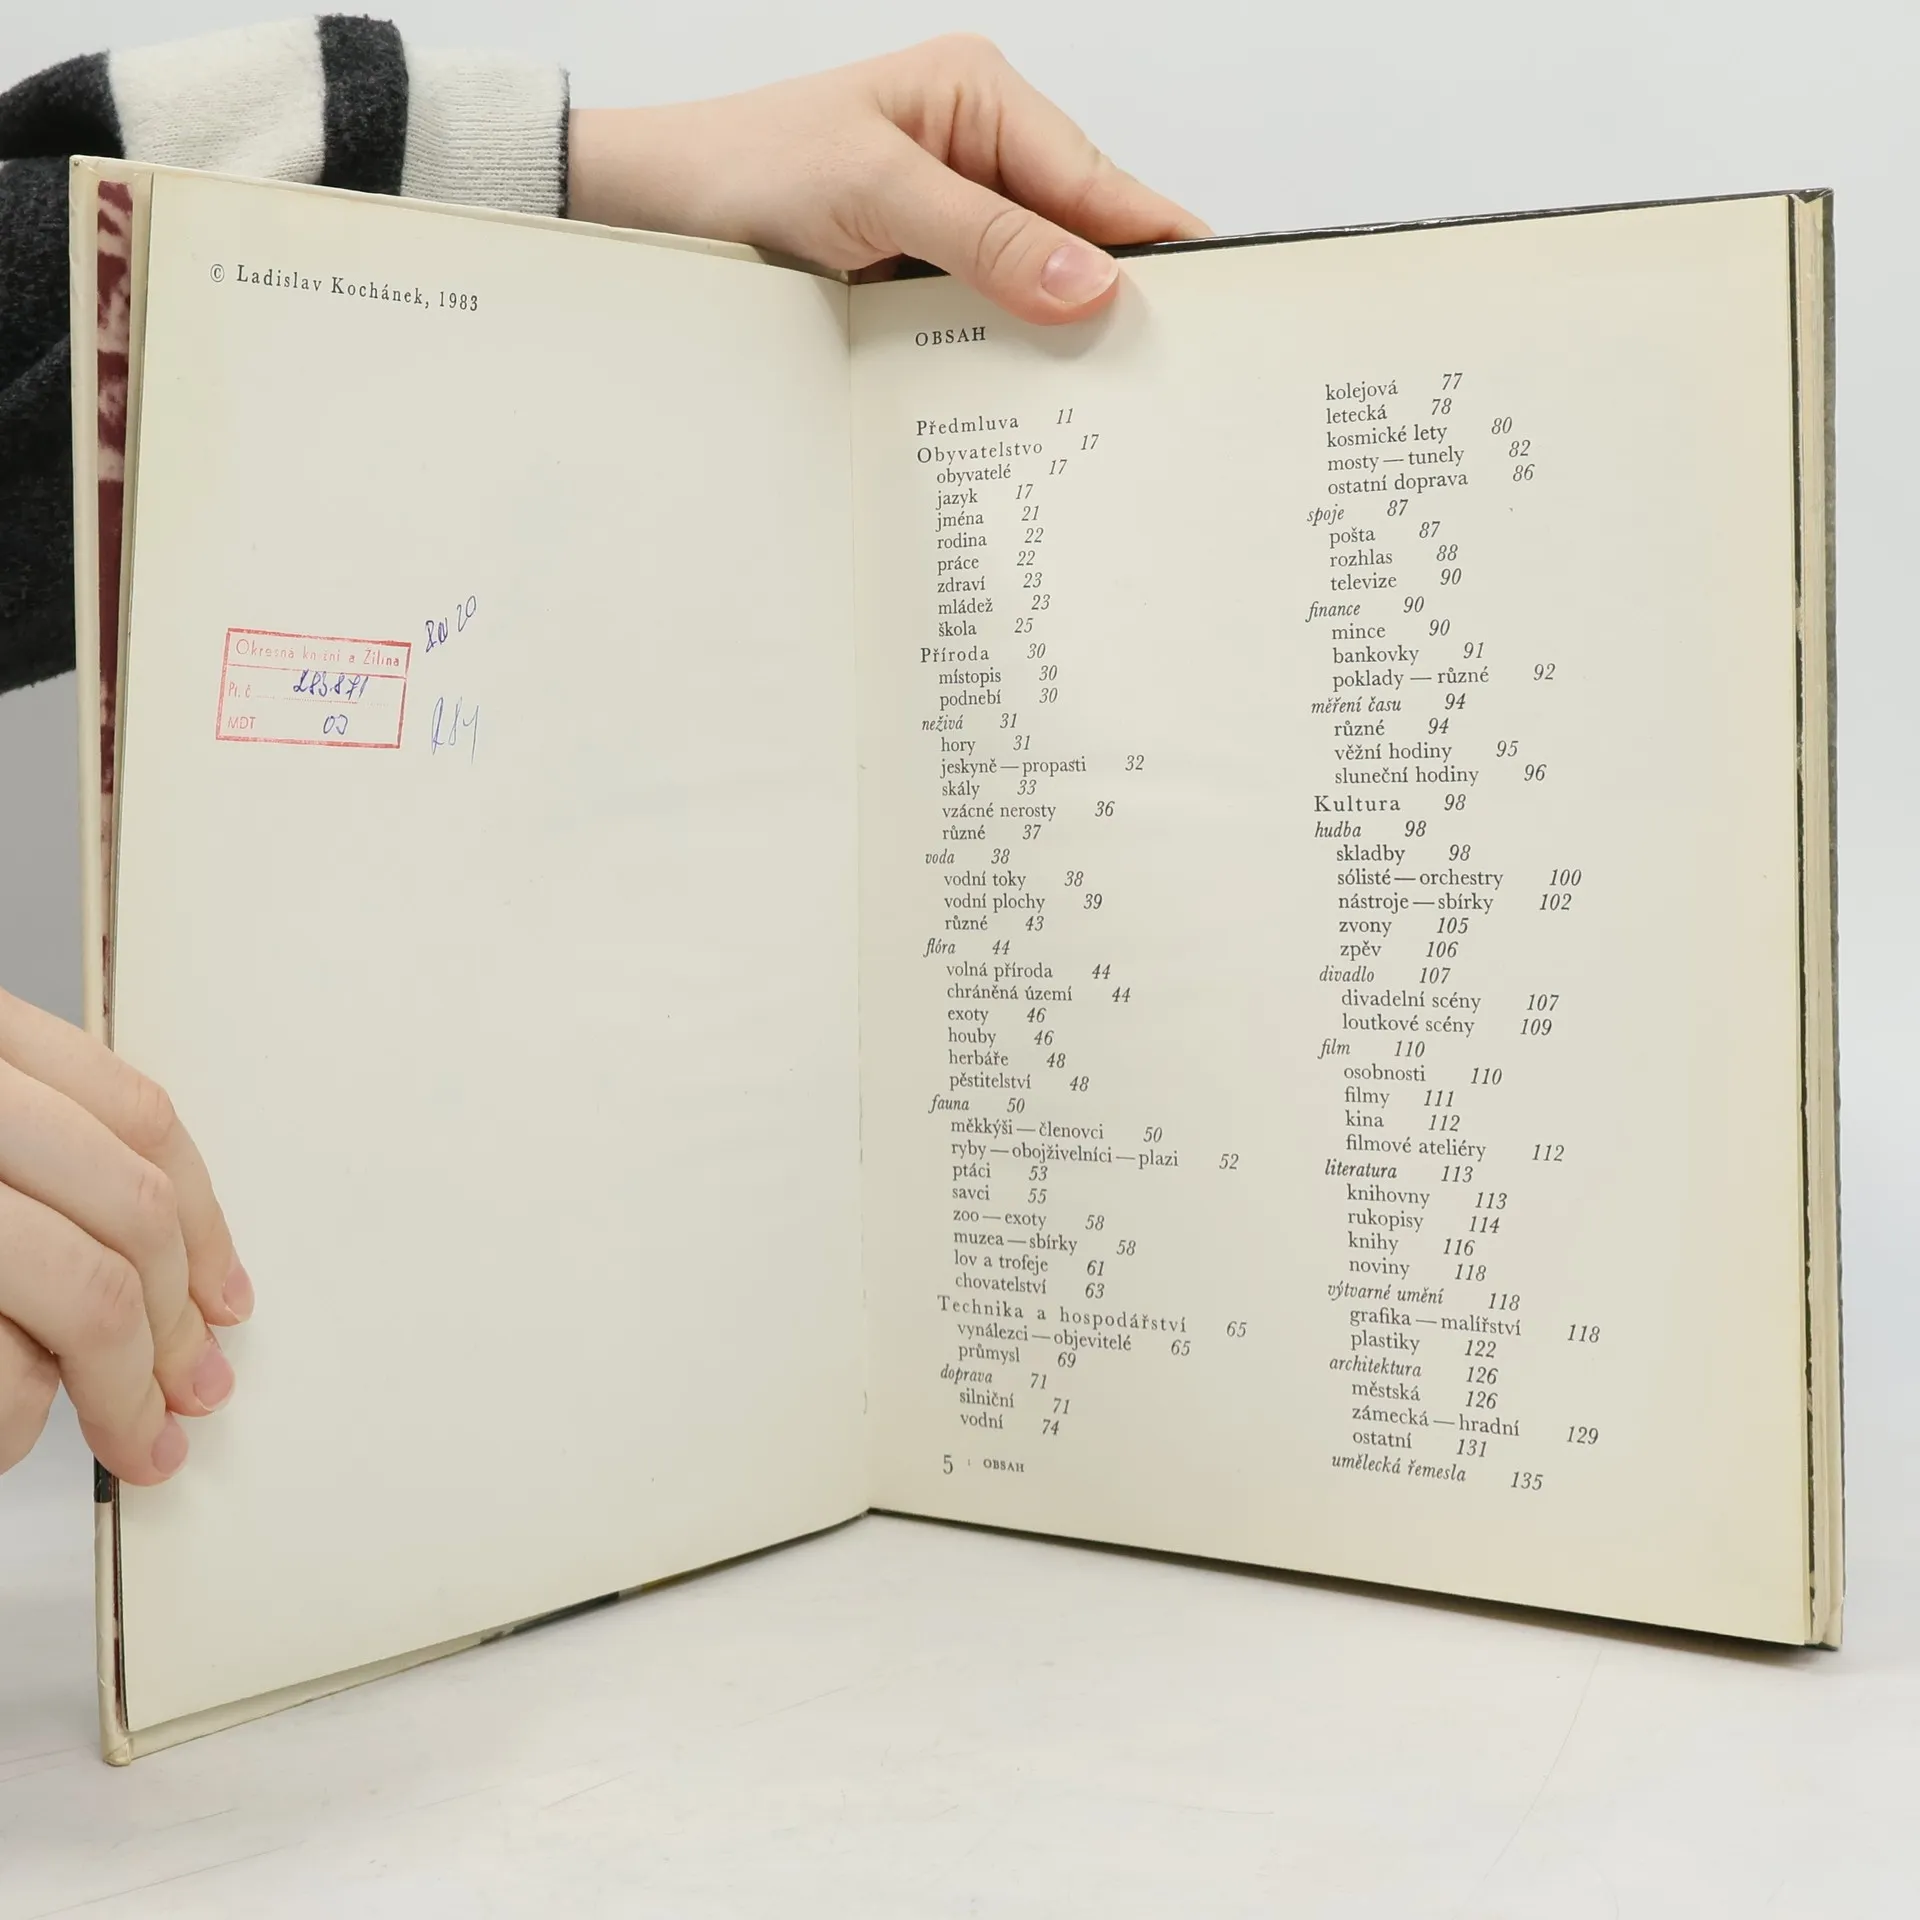 © Ladislav Kochánek, 1983
Okresná knižnica Žilina
Pr. č.
MDT
OBSAH
Předmluva 11
Obyvatelstvo 17
obyvatelé 17
jazyk 17
jména 21
rodina 22
práce 22
zdraví 23
mládež 23
škola 25
Příroda 30
místopis 30
podnebí 30
neživá 31
hory 31
jeskyně — propasti 32
skály 33
vzácné nerosty 36
různé 37
voda 38
vodní toky 38
vodní plochy 39
různé 43
flóra 44
volná příroda 44
chráněná území 44
exoty 46
houby 46
herbáře 48
pěstitelství 48
fauna 50
měkkýši — členovci 50
ryby — obojživelníci — plazi 52
ptáci 53
savci 55
zoo — exoty 58
muzea — sbírky 58
lov a trofeje 61
chovatelství 63
Technika a hospodářství 65
vynálezci — objevitelé 65
průmysl 69
doprava 71
silniční 71
vodní 74
kolejová 77
letecká 78
kosmické lety 80
mosty — tunely 82
ostatní doprava 86
spoje 87
pošta 87
rozhlas 88
televize 90
finance 90
mince 90
bankovky 91
poklady — různé 92
měření času 94
různé 94
věžní hodiny 95
sluneční hodiny 96
Kultura 98
hudba 98
skladby 98
sólisté — orchestry 100
nástroje — sbírky 102
zvony 105
zpěv 106
divadlo 107
divadelní scény 107
loutkové scény 109
film 110
osobnosti 110
filmy 111
kina 112
filmové ateliéry 112
literatura 113
knihovny 113
rukopisy 114
knihy 116
noviny 118
výtvarné umění 118
grafika — malířství 118
plastiky 122
architektura 126
městská 126
zámecká — hradní 129
ostatní 131
umělecká řemesla 135
5 | OBSAH